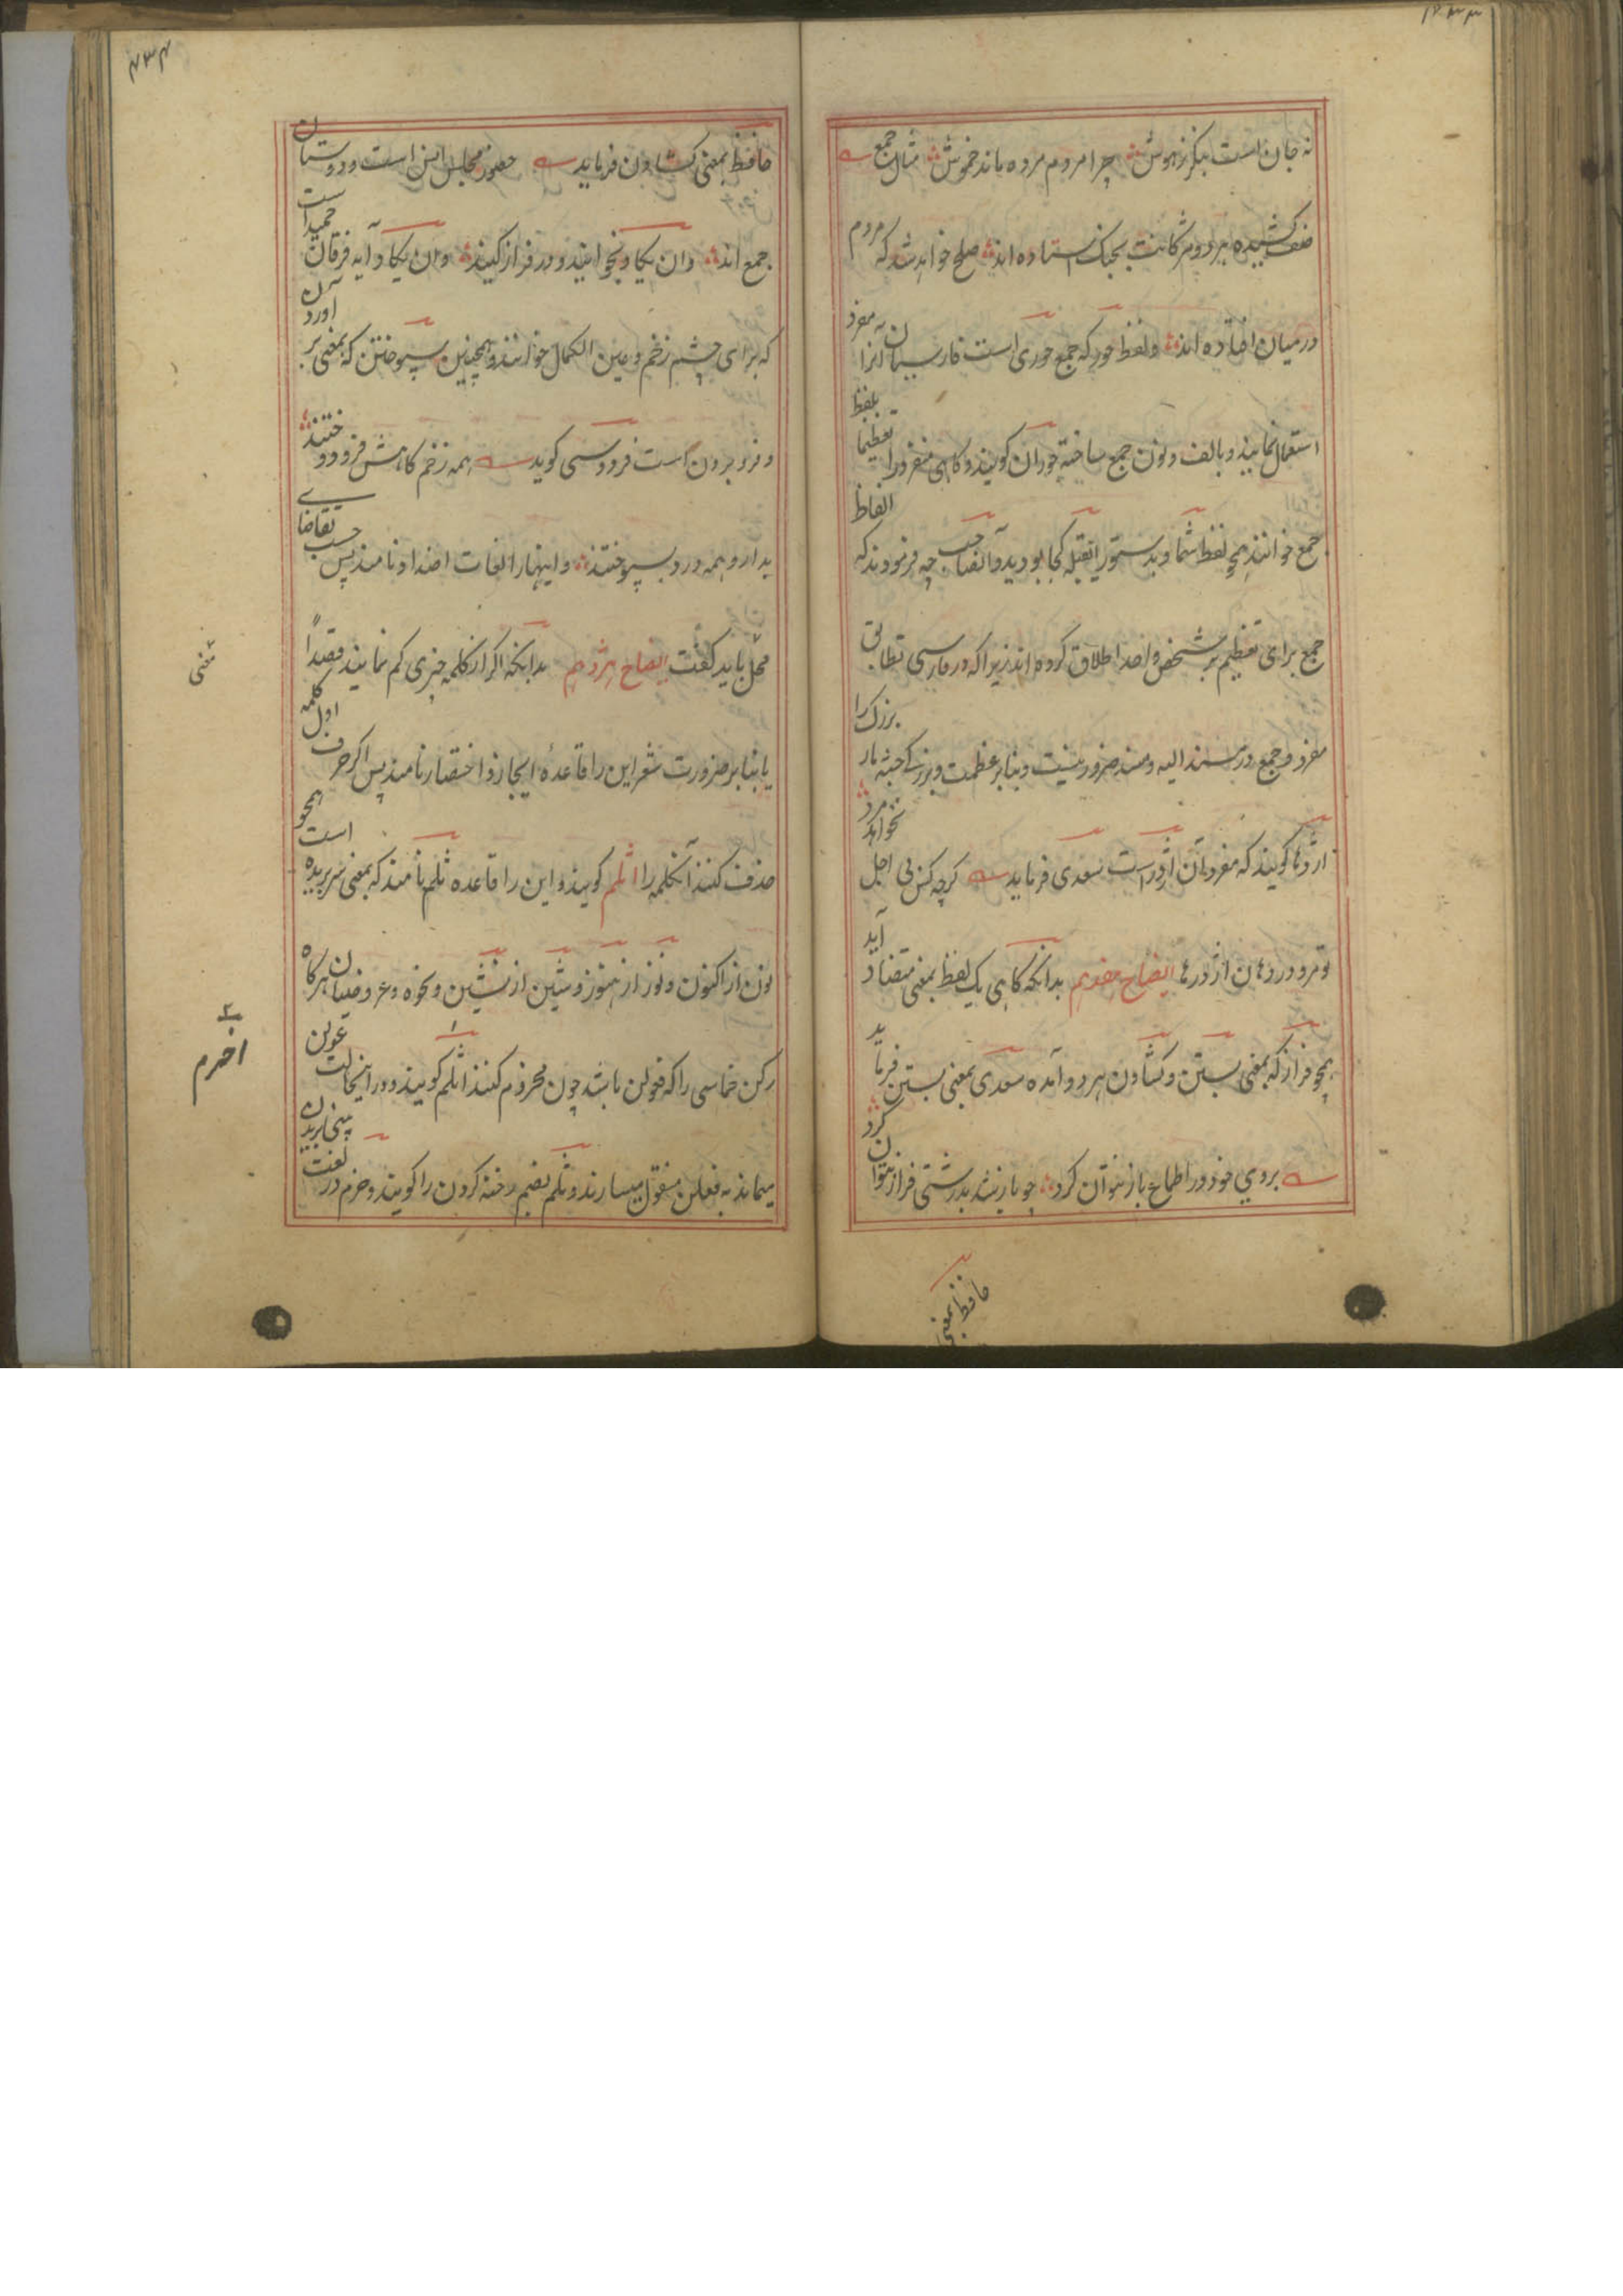 نه جان است بنگر نه هوش چرا مردم مرده باند خموش مثال جمع
صف کشیده هر دو مژگانت بجنگ استاده اند صلح خواهد شد که مردم
در میان افتاده اند ولفظ حور که جمع حوری است فارسیان آنرا مفرد
استعمال نمایند و بالف و نون جمع ساخته حوران گویند و گاهی مفرد را تعظیما بلفظ
جمع خوانند همچو لفظ شما و بدستور ایقبله کجا بودید و آنصاحب چه فرمودند که الفاظ
جمع برای تعظیم بر شخص واحد اطلاق کرده اند زیرا که در فارسی تطابق
مفرد و جمع در مسند الیه و مسند ضرور نیست و بنابر عظمت و بزرگی جثه مار بزرک را
اژدها گویند که مفرد آن اژدر است سعدی فرماید گرچه کس بی اجل نخواهد مرد
تو مرو در دهان اژدرها ایضاح هفدهم بدانکه گاهی یک لفظ بمعنی متضاد آید
همچو فراز که بمعنی بستن و کشادن هر دو آمده سعدی بمعنی بستن فرماید
بروی خود در اطماع باز نتوان کرد چو باز شد بدرشتی فراز نتوان کرد
حافظ بمعنی
۴۳۴
حافظ بمعنی کشادن فرماید حضور مجلس انس است و دوستان
جمع اند وان یکاد بخوانید و در فراز کنید وان یکاد آیه فرقان حمید است
که برای چشم زخم و عین الکمال خوانند و همچنین سپوختن که بمعنی بر آوردن
و فرو بردن است فردوسی گوید همه زخم کاهش فرو دوختند
بدارو همه درد بسپوختند و اینها را لغات اضداد نامند پس حسب تقاضای
محل باید گفت ایضاح هژدهم بدانکه اگر از کلمه چیزی کم نمایند قصداً
یا بنابر ضرورت شعر این را قاعدهٔ ایجاز و اختصار نامند پس اگر حرف اول کلمه
حذف کنند آنکلمه را اثلم گویند و این را قاعده ثلم نامند که بمعنی سر بریده است همچو
نون از اکنون و نوز از هنوز و شین از نشین و نحوه و عروضیان هرگاه
رکن خماسی را که فعولن باشد چون مخروم کنند اثلم گویند و در اینحالت عولن
میماند به فعلن منقول میسازند و ثلم بضم رخنه کردن را گویند و خرم در لغت بینی بریدن
معنی
۲
اخرم